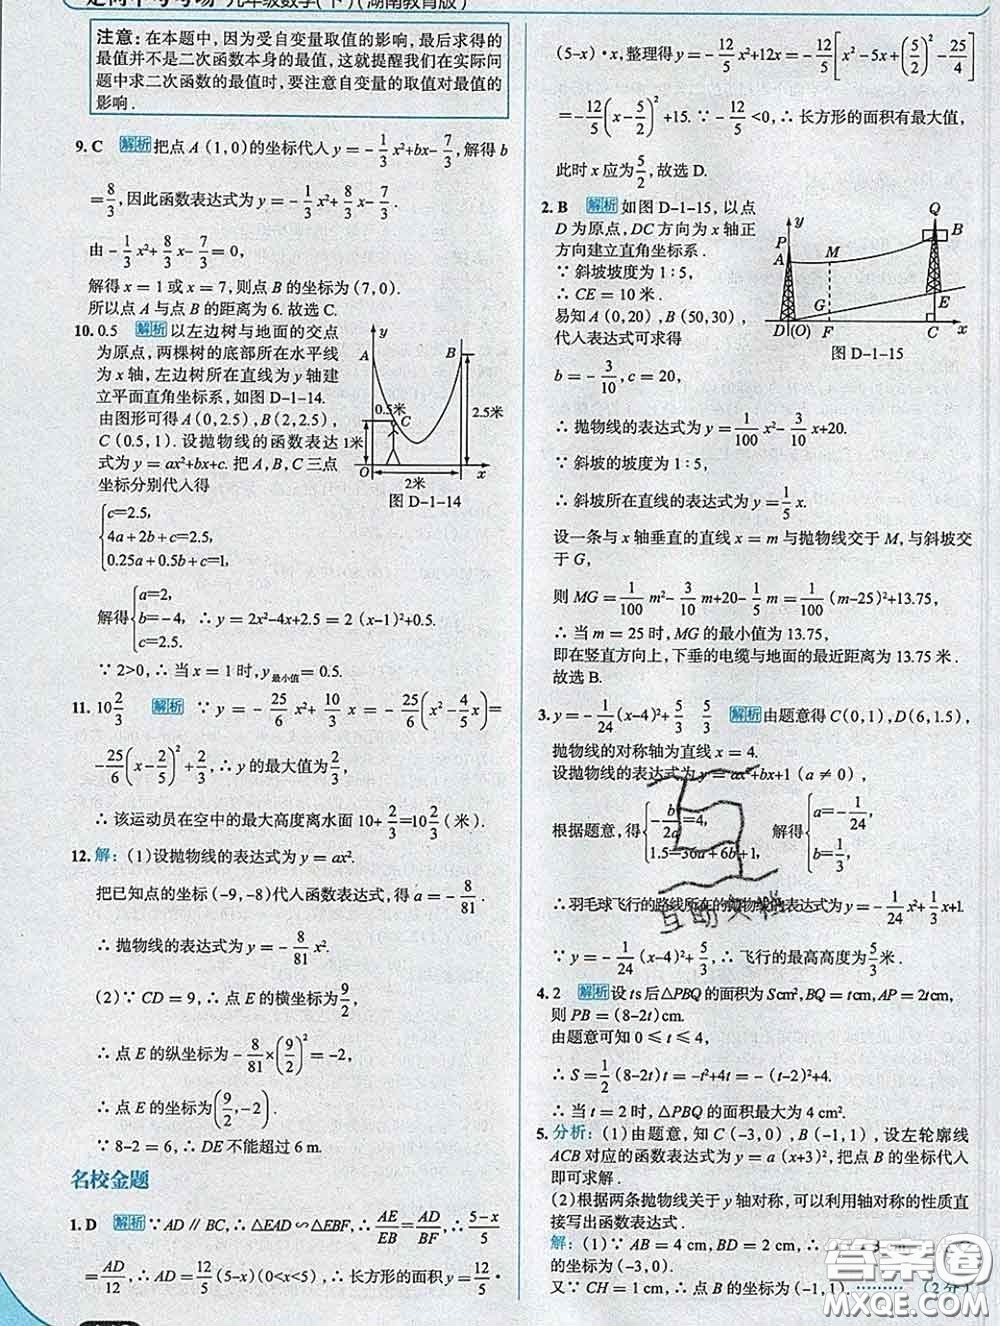 走向中考考场 九年级数学(下)(湖南教育版)
注意:在本题中,因为受自变量取值的影响,最后求得的
最值并不是二次函数本身的最值,这就提醒我们在实际问
题中求二次函数的最值时,要注意自变量的取值对最值的
影响.
9. C 解析 把点 A (1,0)的坐标代人 y = -1/3 x²+bx-7/3,解得 b
=8/3,因此函数表达式为 y = -1/3 x²+8/3 x-7/3.
由 -1/3 x²+8/3 x-7/3=0,
解得 x = 1 或 x = 7,则点 B 的坐标为 (7,0).
所以点 A 与点 B 的距离为 6. 故选 C.
10. 0.5 解析 以左边树与地面的交点
为原点,两棵树的底部所在水平线
为 x 轴,左边树所在直线为 y 轴建
立平面直角坐标系,如图 D-1-14.
由图形可得 A (0,2.5), B (2,2.5),
C (0.5,1). 设抛物线的函数表达
式为 y = ax²+bx+c. 把 A, B, C 三点
坐标分别代人得
y
A
B
0.5米
C
2.5米
1米
O
2米
x
图 D-1-14
{c=2.5,
4a+2b+c=2.5,
0.25a+0.5b+c=1,
解得{a=2,
b=-4,
c=2.5.
∴ y = 2x²-4x+2.5 = 2 (x-1)²+0.5.
∵ 2>0, ∴ 当 x = 1 时, y最小值 = 0.5.
11. 10 2/3 解析 ∵ y = -25/6 x²+10/3 x = -25/6(x²-4/5 x)=
-25/6(x-2/5)²+2/3, ∴ y 的最大值为2/3,
∴ 该运动员在空中的最大高度离水面 10+2/3=10 2/3(米).
12. 解: (1)设抛物线的表达式为 y = ax².
把已知点的坐标 (-9,-8)代人函数表达式,得 a = -8/81.
∴ 抛物线的表达式为 y = -8/81 x².
(2)∵ CD = 9, ∴ 点 E 的横坐标为9/2,
∴ 点 E 的纵坐标为 -8/81×(9/2)²=-2,
∴ 点 E 的坐标为(9/2,-2).
∵ 8-2 = 6, ∴ DE 不能超过 6 m.
名校金题
1. D 解析 ∵ AD ∥ BC, ∴ △EAD∽△EBF, ∴ AE/EB=AD/BF, ∴ (5-x)/5
=AD/12, ∴ AD=12/5(5-x)(0<x<5), ∴ 长方形的面积 y=12/5·
(5-x)·x,整理得 y=-12/5x²+12x=-12/5[x²-5x+(5/2)²-25/4]
=-12/5(x-5/2)²+15. ∵ -12/5<0, ∴ 长方形的面积有最大值,
此时 x 应为5/2,故选 D.
2. B 解析 如图 D-1-15,以点
D 为原点, DC 方向为 x 轴正
方向建立直角坐标系.
∵ 斜坡坡度为 1:5,
∴ CE = 10 米.
易知 A (0,20), B (50,30),
代人表达式可求得
b = -3/10, c = 20,
y
P
A
M
Q
B
G
E
D
(O)
F
C
x
图 D-1-15
∴ 抛物线的表达式为 y=1/100 x²-3/10 x+20.
∵ 斜坡的坡度为 1:5,
∴ 斜坡所在直线的表达式为 y=1/5 x.
设一条与 x 轴垂直的直线 x = m 与抛物线交于 M,与斜坡交
于 G,
则 MG=1/100 m²-3/10 m+20-1/5 m=1/100 (m-25)²+13.75,
∴ 当 m = 25 时, MG 的最小值为 13.75,
即在竖直方向上,下垂的电缆与地面的最近距离为 13.75 米.
故选 B.
3. y=-1/24(x-4)²+5/3 5/3 解析 由题意得 C (0,1), D (6,1.5),
抛物线的对称轴为直线 x = 4.
设抛物线的表达式为 y = ax²+bx+1 (a ≠ 0),
根据题意,得{-b/2a=4,
1.5=36a+6b+1,
解得{a=-1/24,
b=1/3,
∴羽毛球飞行的路线所在的抛物线的表达式为 y=-1/24x²+1/3x+1.
∵ y = -1/24 (x-4)²+5/3, ∴ 飞行的最高高度为5/3米.
4. 2 解析 设 ts 后△PBQ 的面积为 Scm², BQ = tcm, AP = 2tcm,
则 PB = (8-2t)cm.
由题意可知 0 ≤ t ≤ 4,
∴ S=1/2 (8-2t)t = -t²+4t = -(t-2)²+4.
∴ 当 t = 2 时, △PBQ 的面积最大为 4 cm².
5. 分析: (1)由题意,知 C (-3,0), B (-1,1),设左轮廓线
ACB 对应的函数表达式为 y = a (x+3)²,把点 B 的坐标代人
即可求解.
(2)根据两条抛物线关于 y 轴对称,可以利用轴对称的性质直
接写出函数表达式.
解: (1)∵ AB = 4 cm, BD = 2 cm,
的坐标为 (-3,0).
又∵ CH = 1 cm, ∴ 点 B 的坐标为 (-1,1). ········· (2 分)
互助文档
答案圈
MXQE.COM